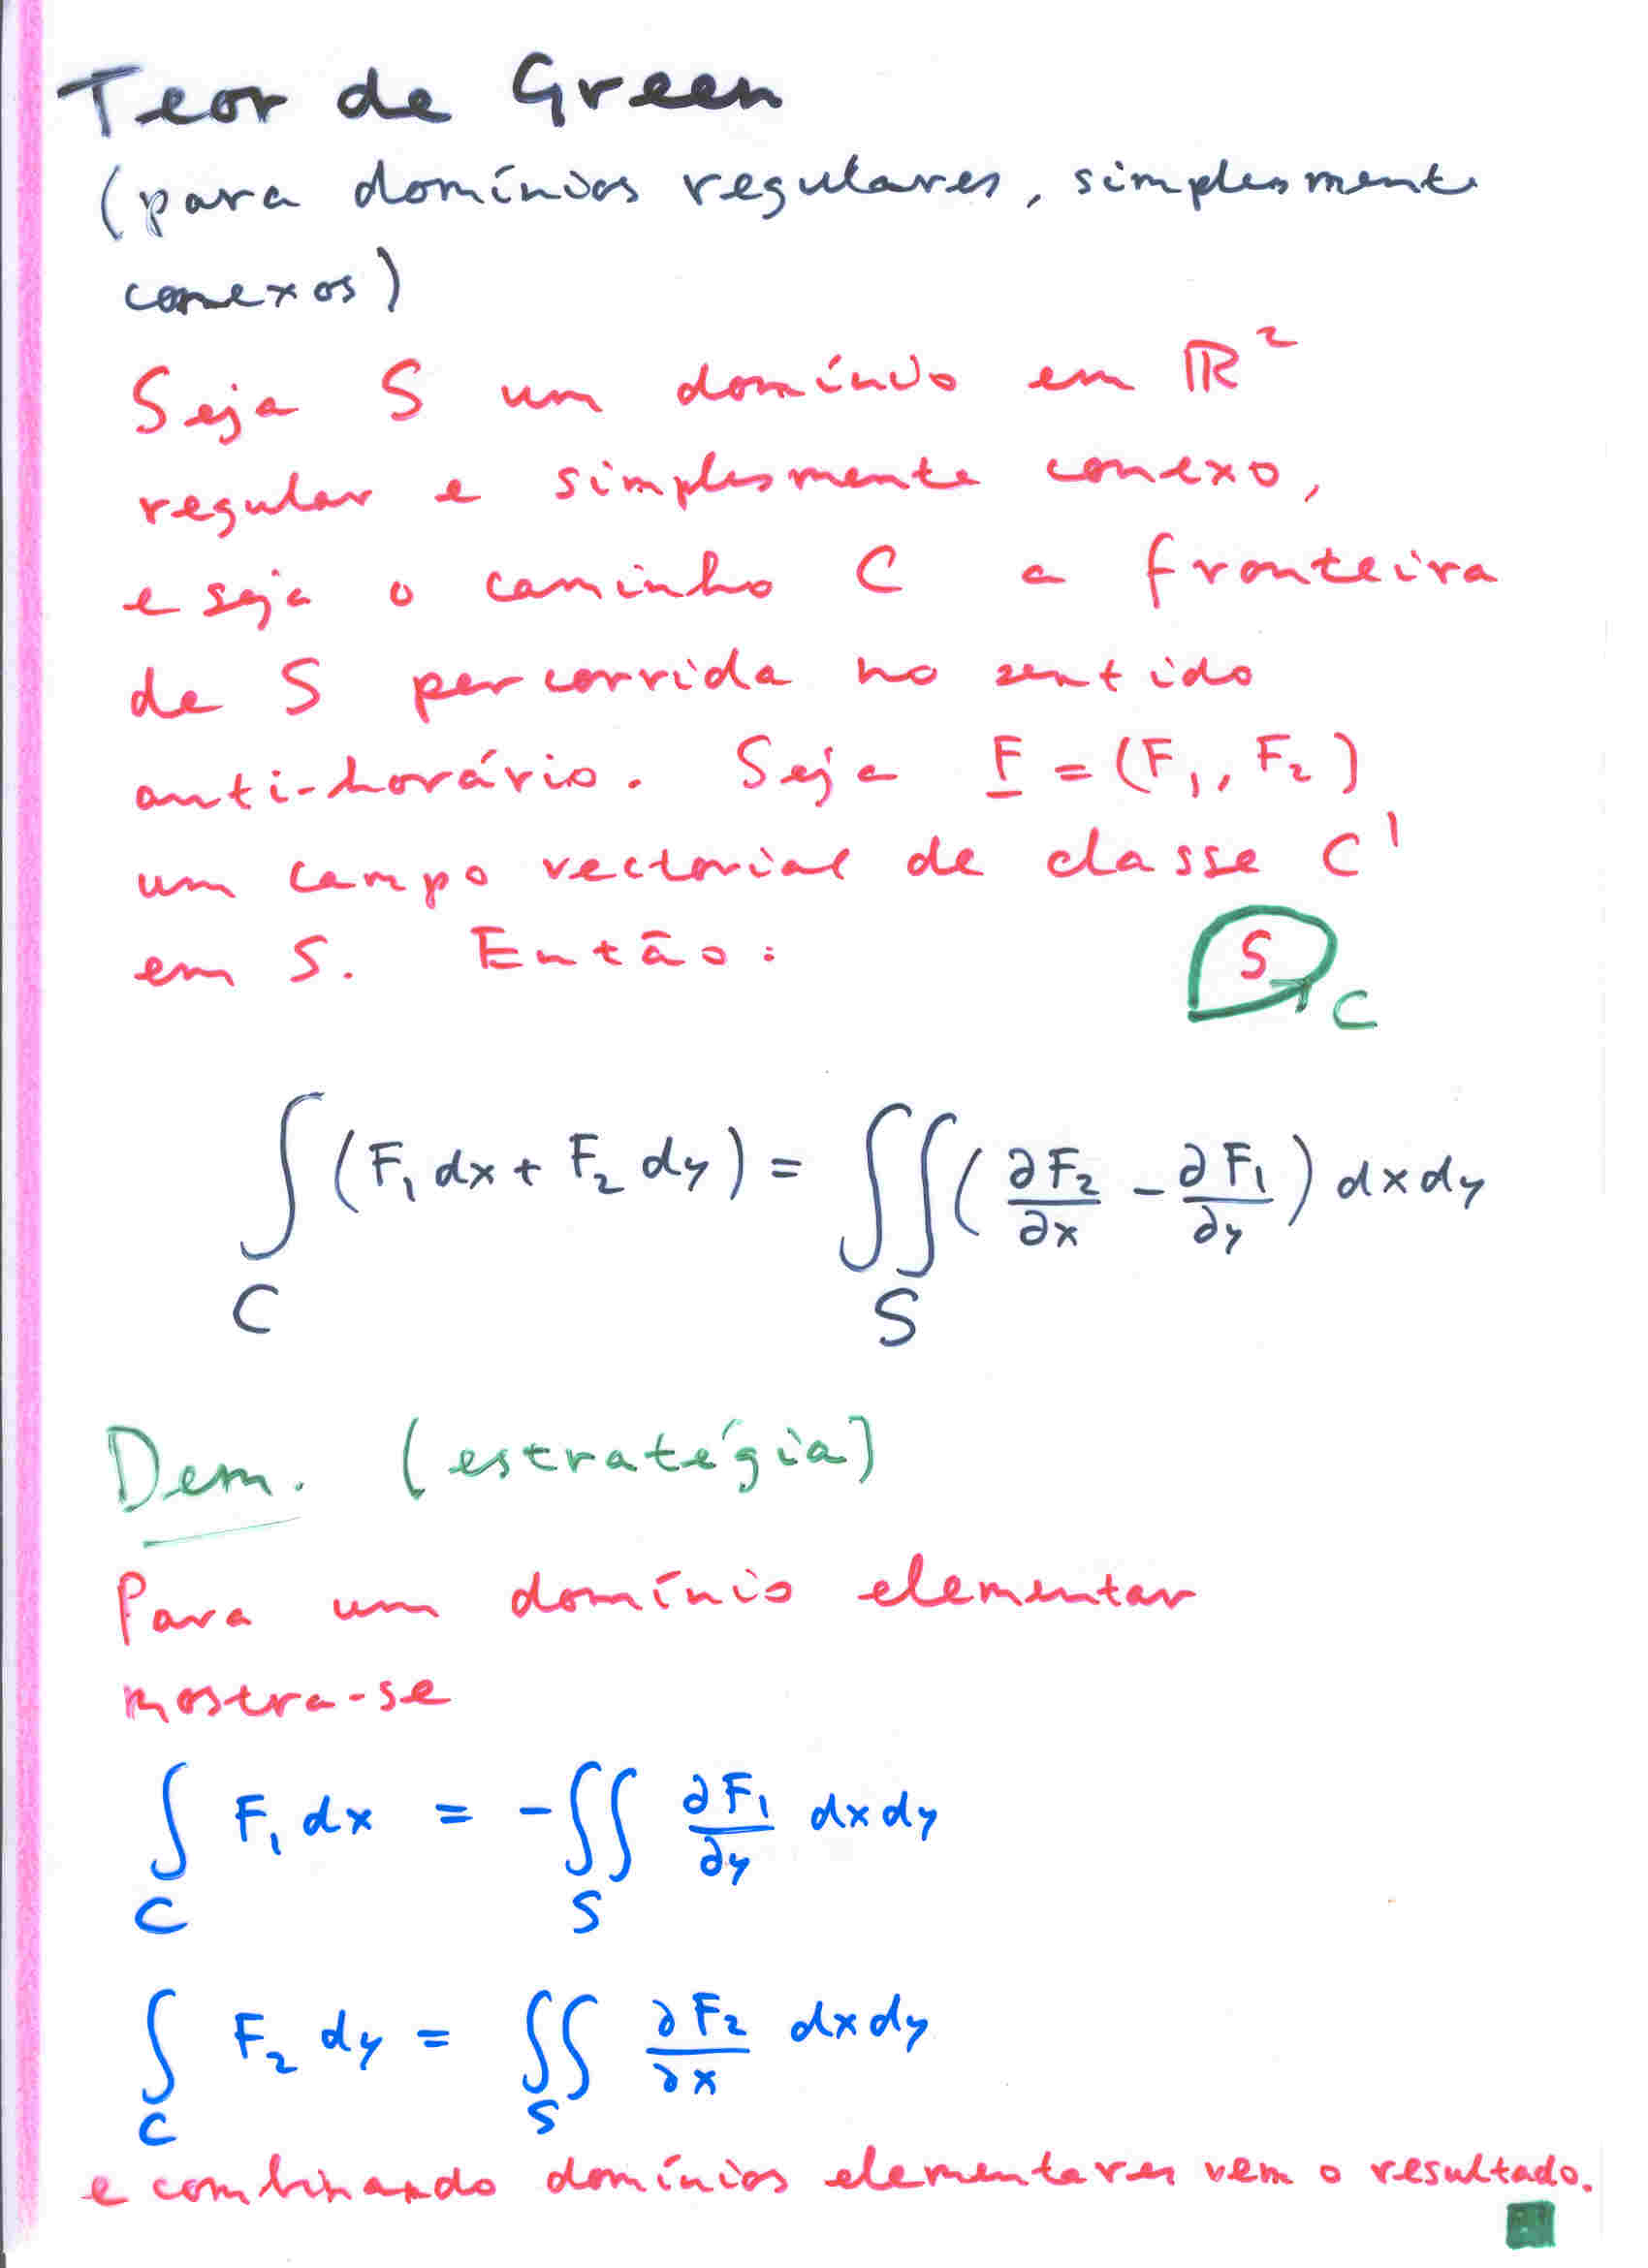 Teor de Green
(para domínios regulares, simplesmente
conexos)
Seja S um domínio em ℝ²
regular e simplesmente conexo,
e seja o caminho C a fronteira
de S percorrida no sentido
anti-horário. Seja F̲ = (F₁, F₂)
um campo vectorial de classe C¹
em S. Então:
S
C
∫_C (F₁ dx + F₂ dy) = ∬_S (∂F₂/∂x - ∂F₁/∂y) dx dy
Dem. (estratégia)
Para um domínio elementar
mostra-se
∫_C F₁ dx = -∬_S ∂F₁/∂y dx dy
∫_C F₂ dy = ∬_S ∂F₂/∂x dx dy
e combinando domínios elementares vem o resultado.